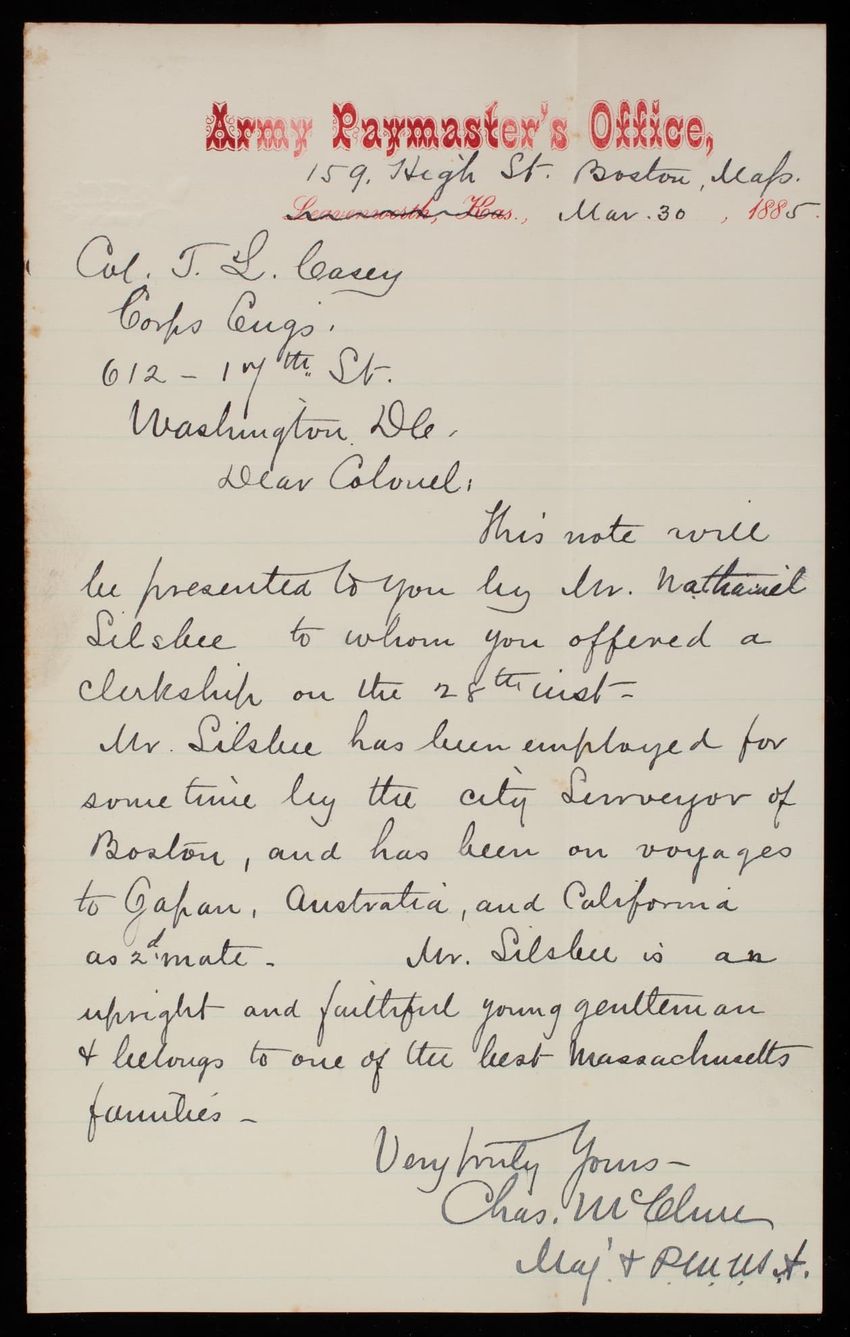 Army Paymaster's Office,
159, High St. Boston, Mass.
Leavenworth, Kas., Mar. 30, 1885.
Col. T. L. Casey
Corps Engs.
612 - 17th St.
Washington DC.
Dear Colonel,
This note will
be presented to you by Mr. Nathaniel
Silsbee to whom you offered a
clerkship on the 28th inst -
Mr. Silsbee has been employed for
some time by the city Surveyor of
Boston, and has been on voyages
to Japan, Australia, and California
as 2d mate - Mr. Silsbee is an
upright and faithful young gentleman
& belongs to one of the best Massachusetts
families -
Very truly Yours -
Chas. McClure
Maj. & P.M. U.S.A.